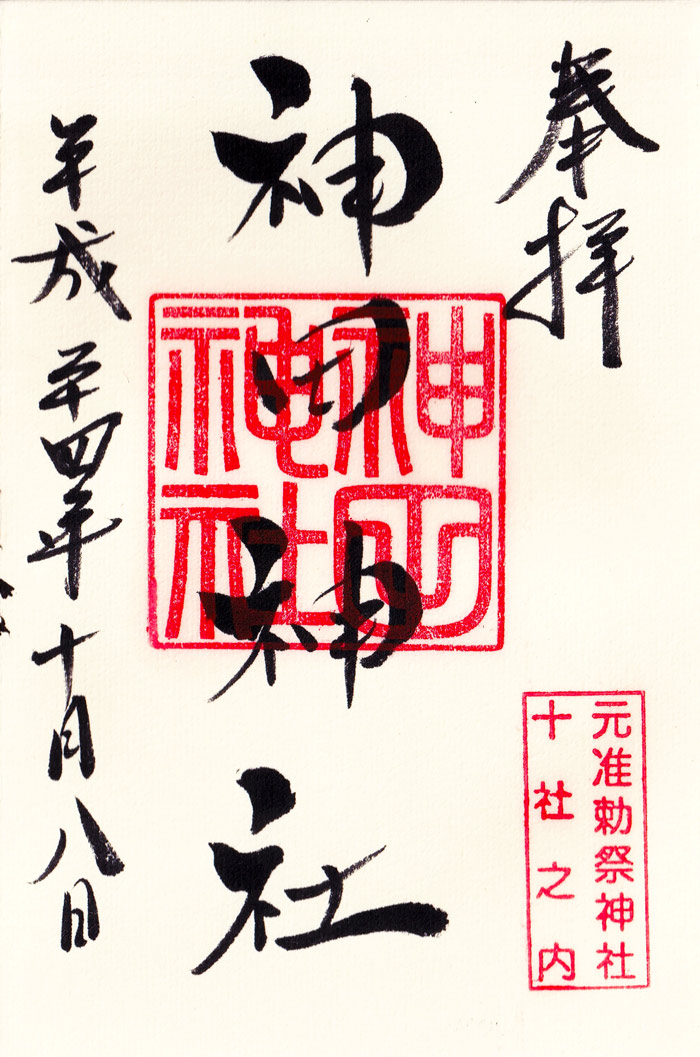 奉拝
元准勅祭神社
十社之内
神田神社
神田
神社
平成二十四年十月八日